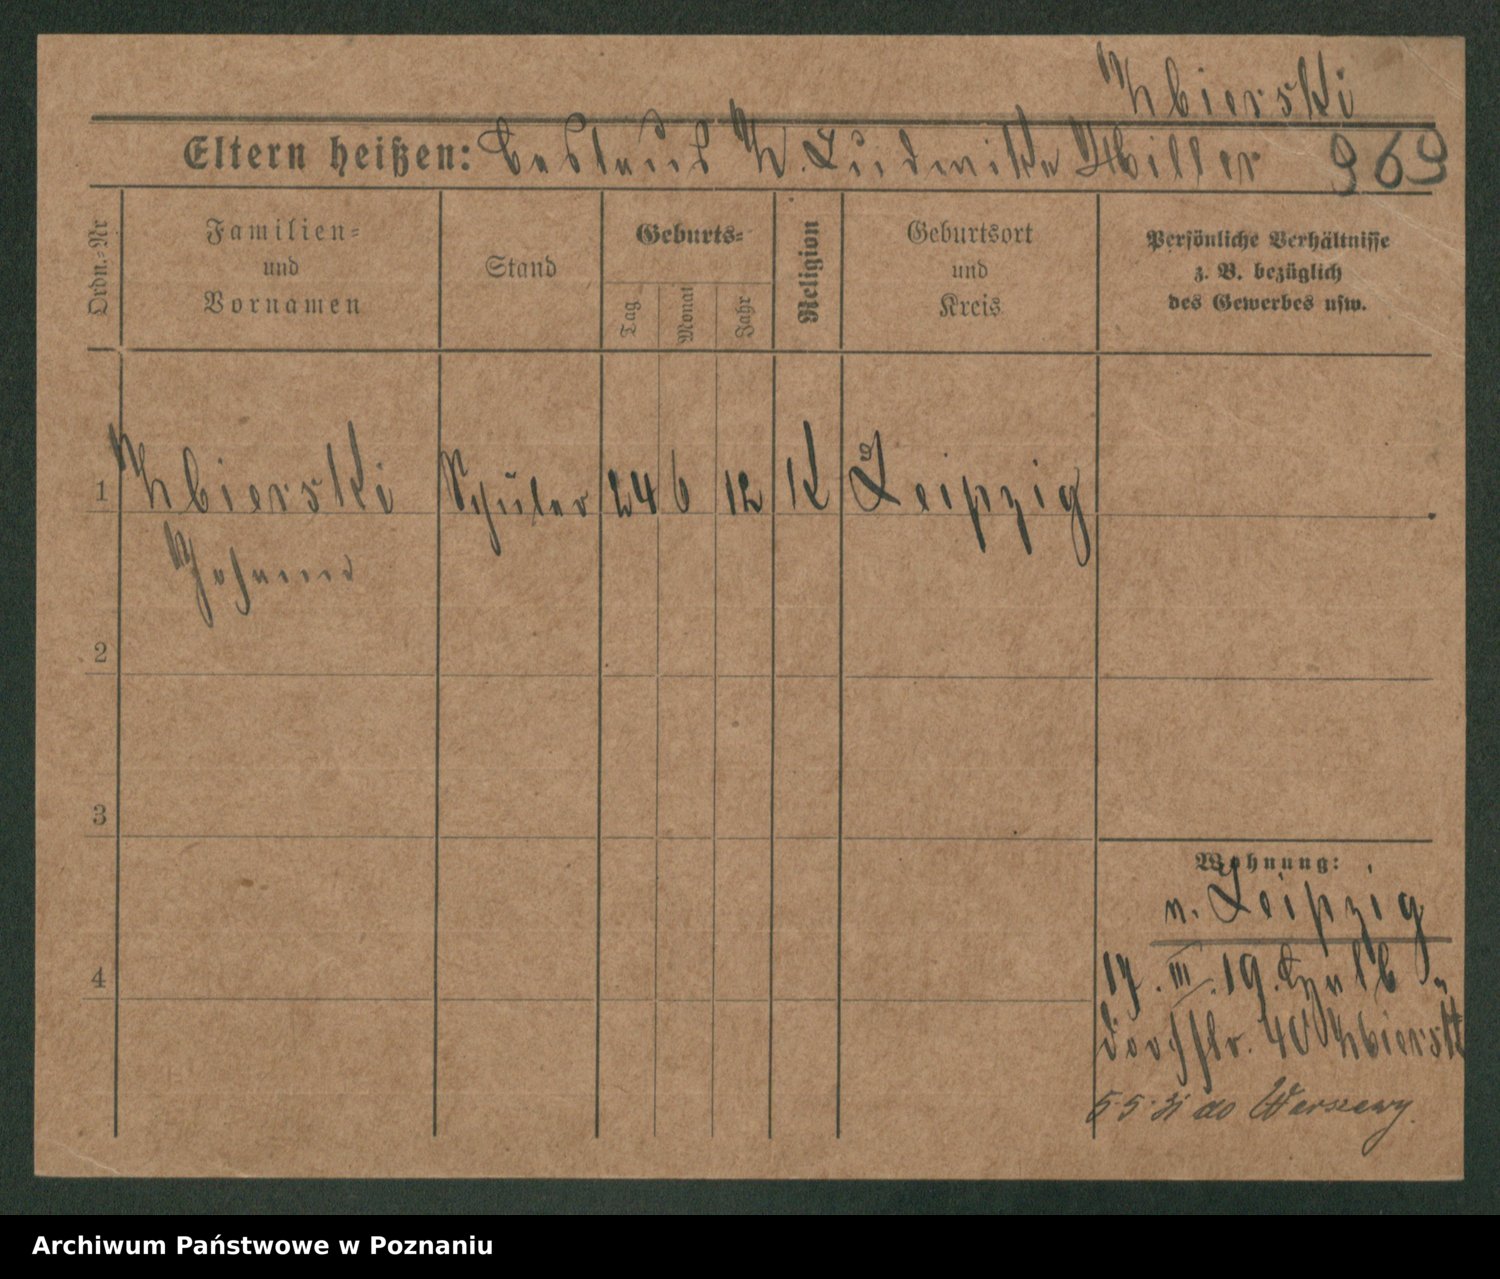 Zbierski
Eltern heißen: Z. Ludwika Hiller 969
Ordn.-Nr
Familien=
und
Vornamen
Stand
Geburts=
Tag
Monat
Jahr
Religion
Geburtsort
und
Kreis
Persönliche Verhältnisse
z. B. bezüglich
des Gewerbes usw.
1 Zbierski Schüler 24 6 12 K Leipzig
Johann
2
3
4
Wohnung:
n. Leipzig
17. III. 19.
40 Zbierski
5.5.31 do Warszawy.
Archiwum Państwowe w Poznaniu